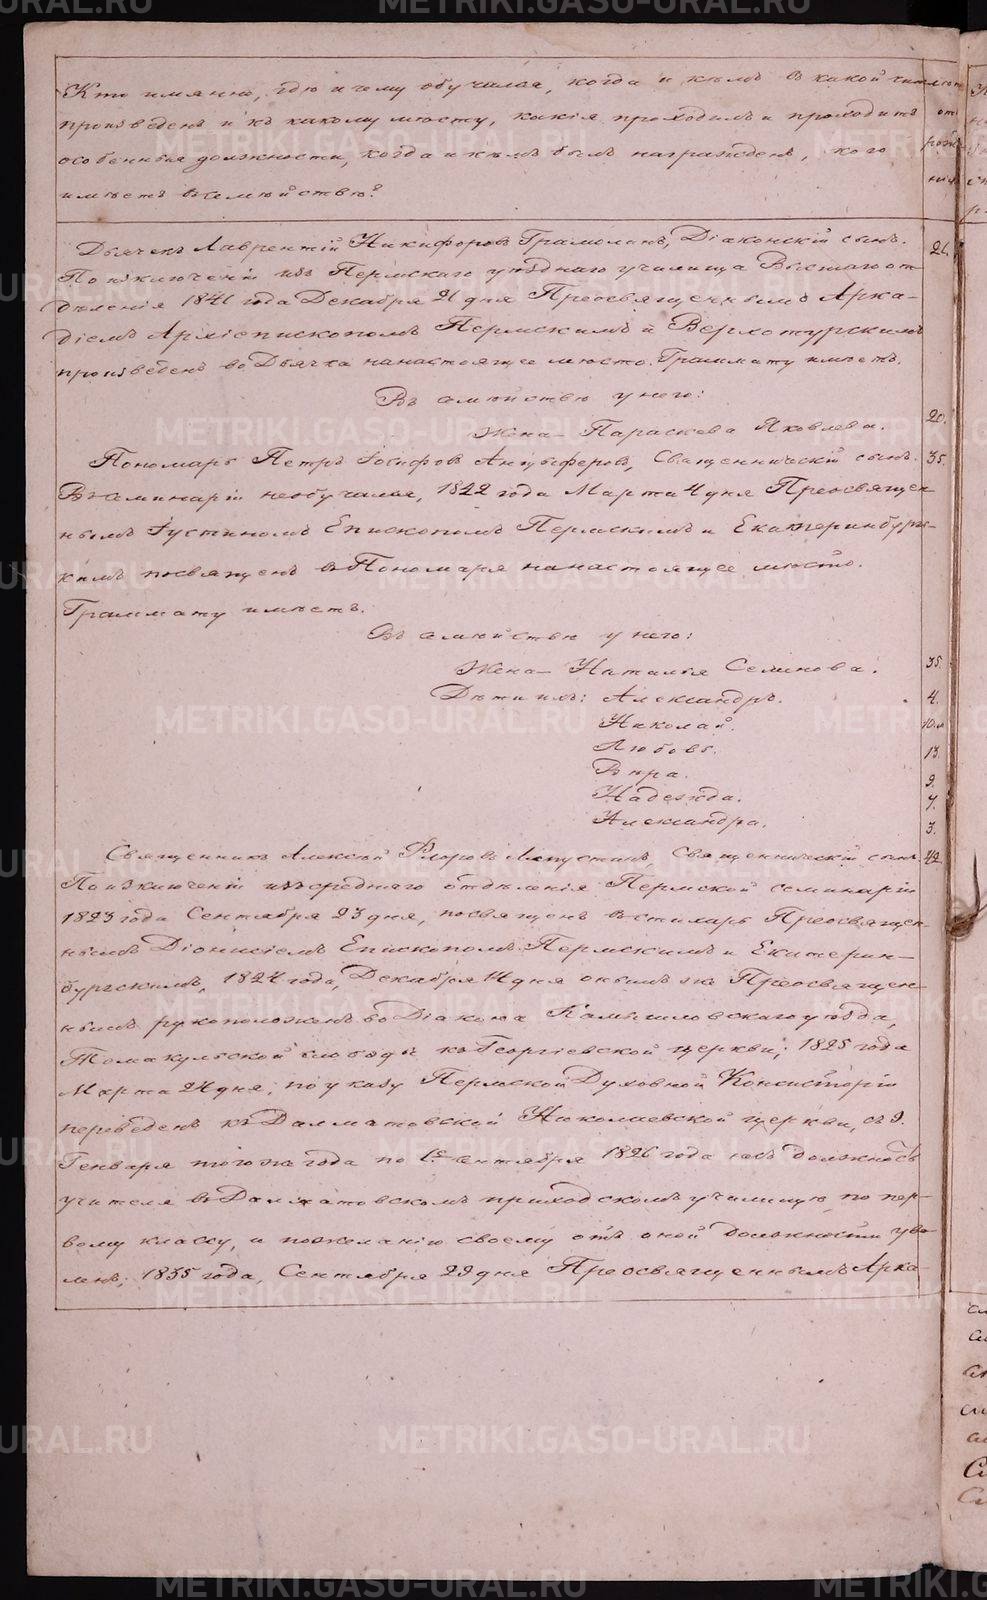 Кто имянно, гдѣ и чему обучался, когда и кѣмъ въ какой чинъ лѣта
произведенъ и къ какому мѣсту, какія проходилъ и проходитъ отъ
особенныя должности, когда и кѣмъ былъ награжденъ, кого рожд
имѣетъ въ семействѣ?
Дьячекъ Лаврентій Никифоровъ Грамолинъ, Діаконскій сынъ. 26.
По изключеніи изъ Пермскаго уѣзднаго училища Высшаго от-
дѣленія 1841 года Декабря 21 дня Преосвященнымъ Арка-
діемъ Архіепископомъ Пермскимъ и Верхотурскимъ
произведенъ во Дьячка на настоящее мѣсто. Граммату имѣетъ.
Въ семействѣ у него:
Жена – Параскева Яковлева. 20.
Пономарь Петръ Іосифовъ Анцыферовъ, Священническій сынъ. 35.
Въ Семинаріи необучался, 1822 года Марта 4 дня Преосвящен-
нымъ Іустиномъ Епископомъ Пермскимъ и Екатеринбургс-
кимъ посвященъ въ Пономаря на настоящее мѣсто.
Граммату имѣетъ.
Въ семействѣ у него:
Жена – Наталья Семенова. 35.
Дѣти ихъ: Александръ. 4.
Николай. 10.м
Любовь. 13.
Вѣра. 9.
Надежда. 7.
Александра. 3.
Священникъ Алексѣй Флоровъ Священническій сынъ. 42
По изключеніи изъ средняго отдѣленія Пермской семинаріи
1823 года Сентября 23 дня, посвященъ въ стихарь Преосвящен-
нымъ Діонисіемъ Епископомъ Пермскимъ и Екатерин-
бургскимъ, 1824 года, Декабря 14 дня онымъ же Преосвящен-
нымъ рукоположенъ во Діакона Камышловскаго уѣзда,
Томакульской слободы къ Георгіевской церкви; 1825 года
Марта 24 дня, по указу Пермской Духовной Консисторіи
переведенъ къ Далматовской Николаевской церкви, съ 9.
Генваря тогожъ года по 1е Сентября 1826 года былъ въ должность
учителя въ Далматовскомъ приходскомъ училищѣ по пер-
вому классу, и пожеланію своему отъ оной должности уво-
ленъ; 1835 года, Сентября 29 дня Преосвященнымъ Арка-
METRIKI.GASO-URAL.RU